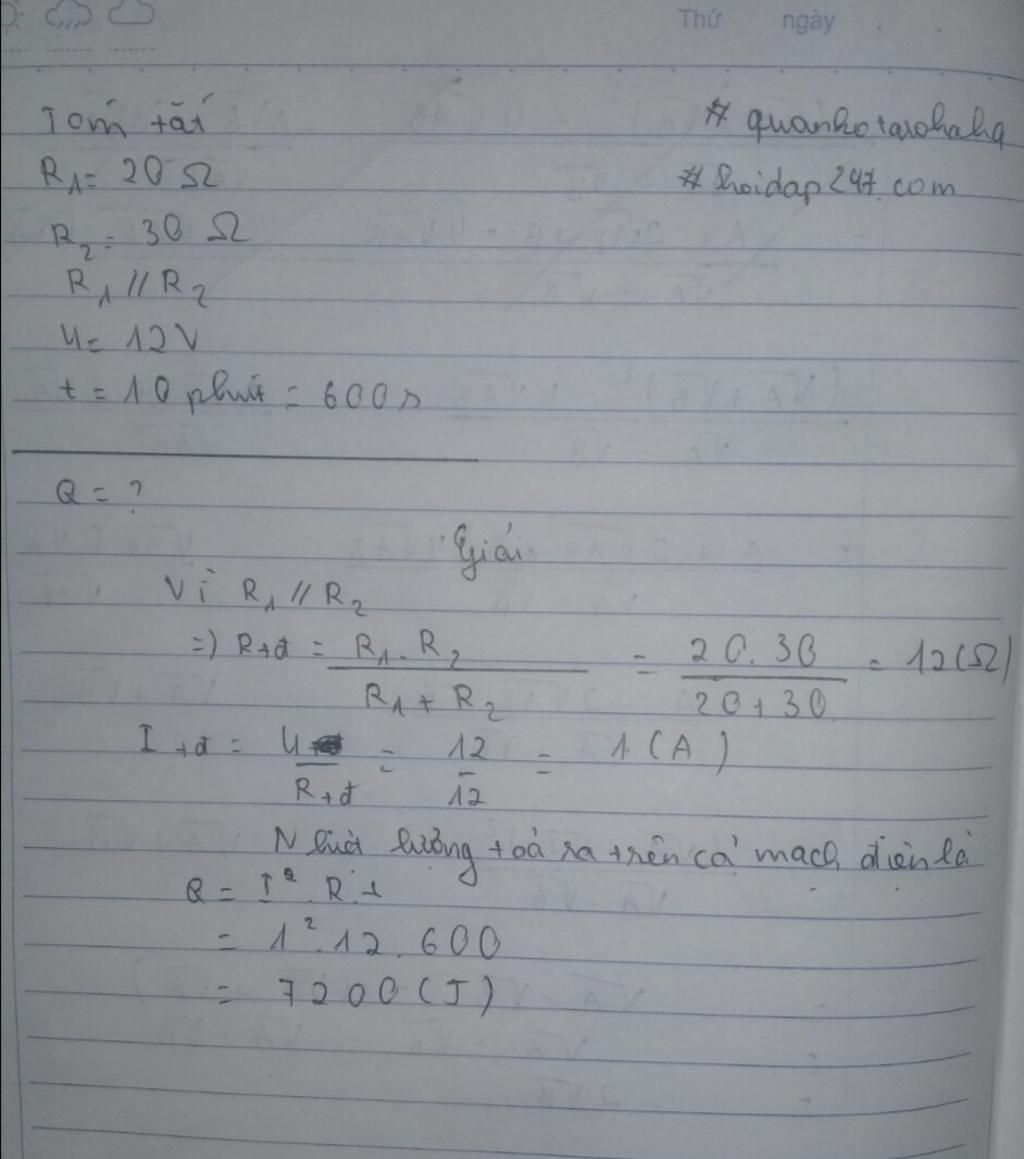 Thứ ngày
Tóm tắt
# quanhotarohaha
R₁ = 20 Ω
# hoidap247.com
R₂ = 30 Ω
R₁ // R₂
U = 12V
t = 10 phút = 600s
Q = ?
Giải
Vì R₁ // R₂
=) Rtđ = R₁. R₂ / R₁ + R₂ = 20.30 / 20+30 = 12(Ω)
Itđ = U / Rtđ = 12 / 12 = 1 (A)
Nhiệt lượng toả ra trên cả mạch điện là
Q = I². R. t
= 1².12.600
= 7200 (J)